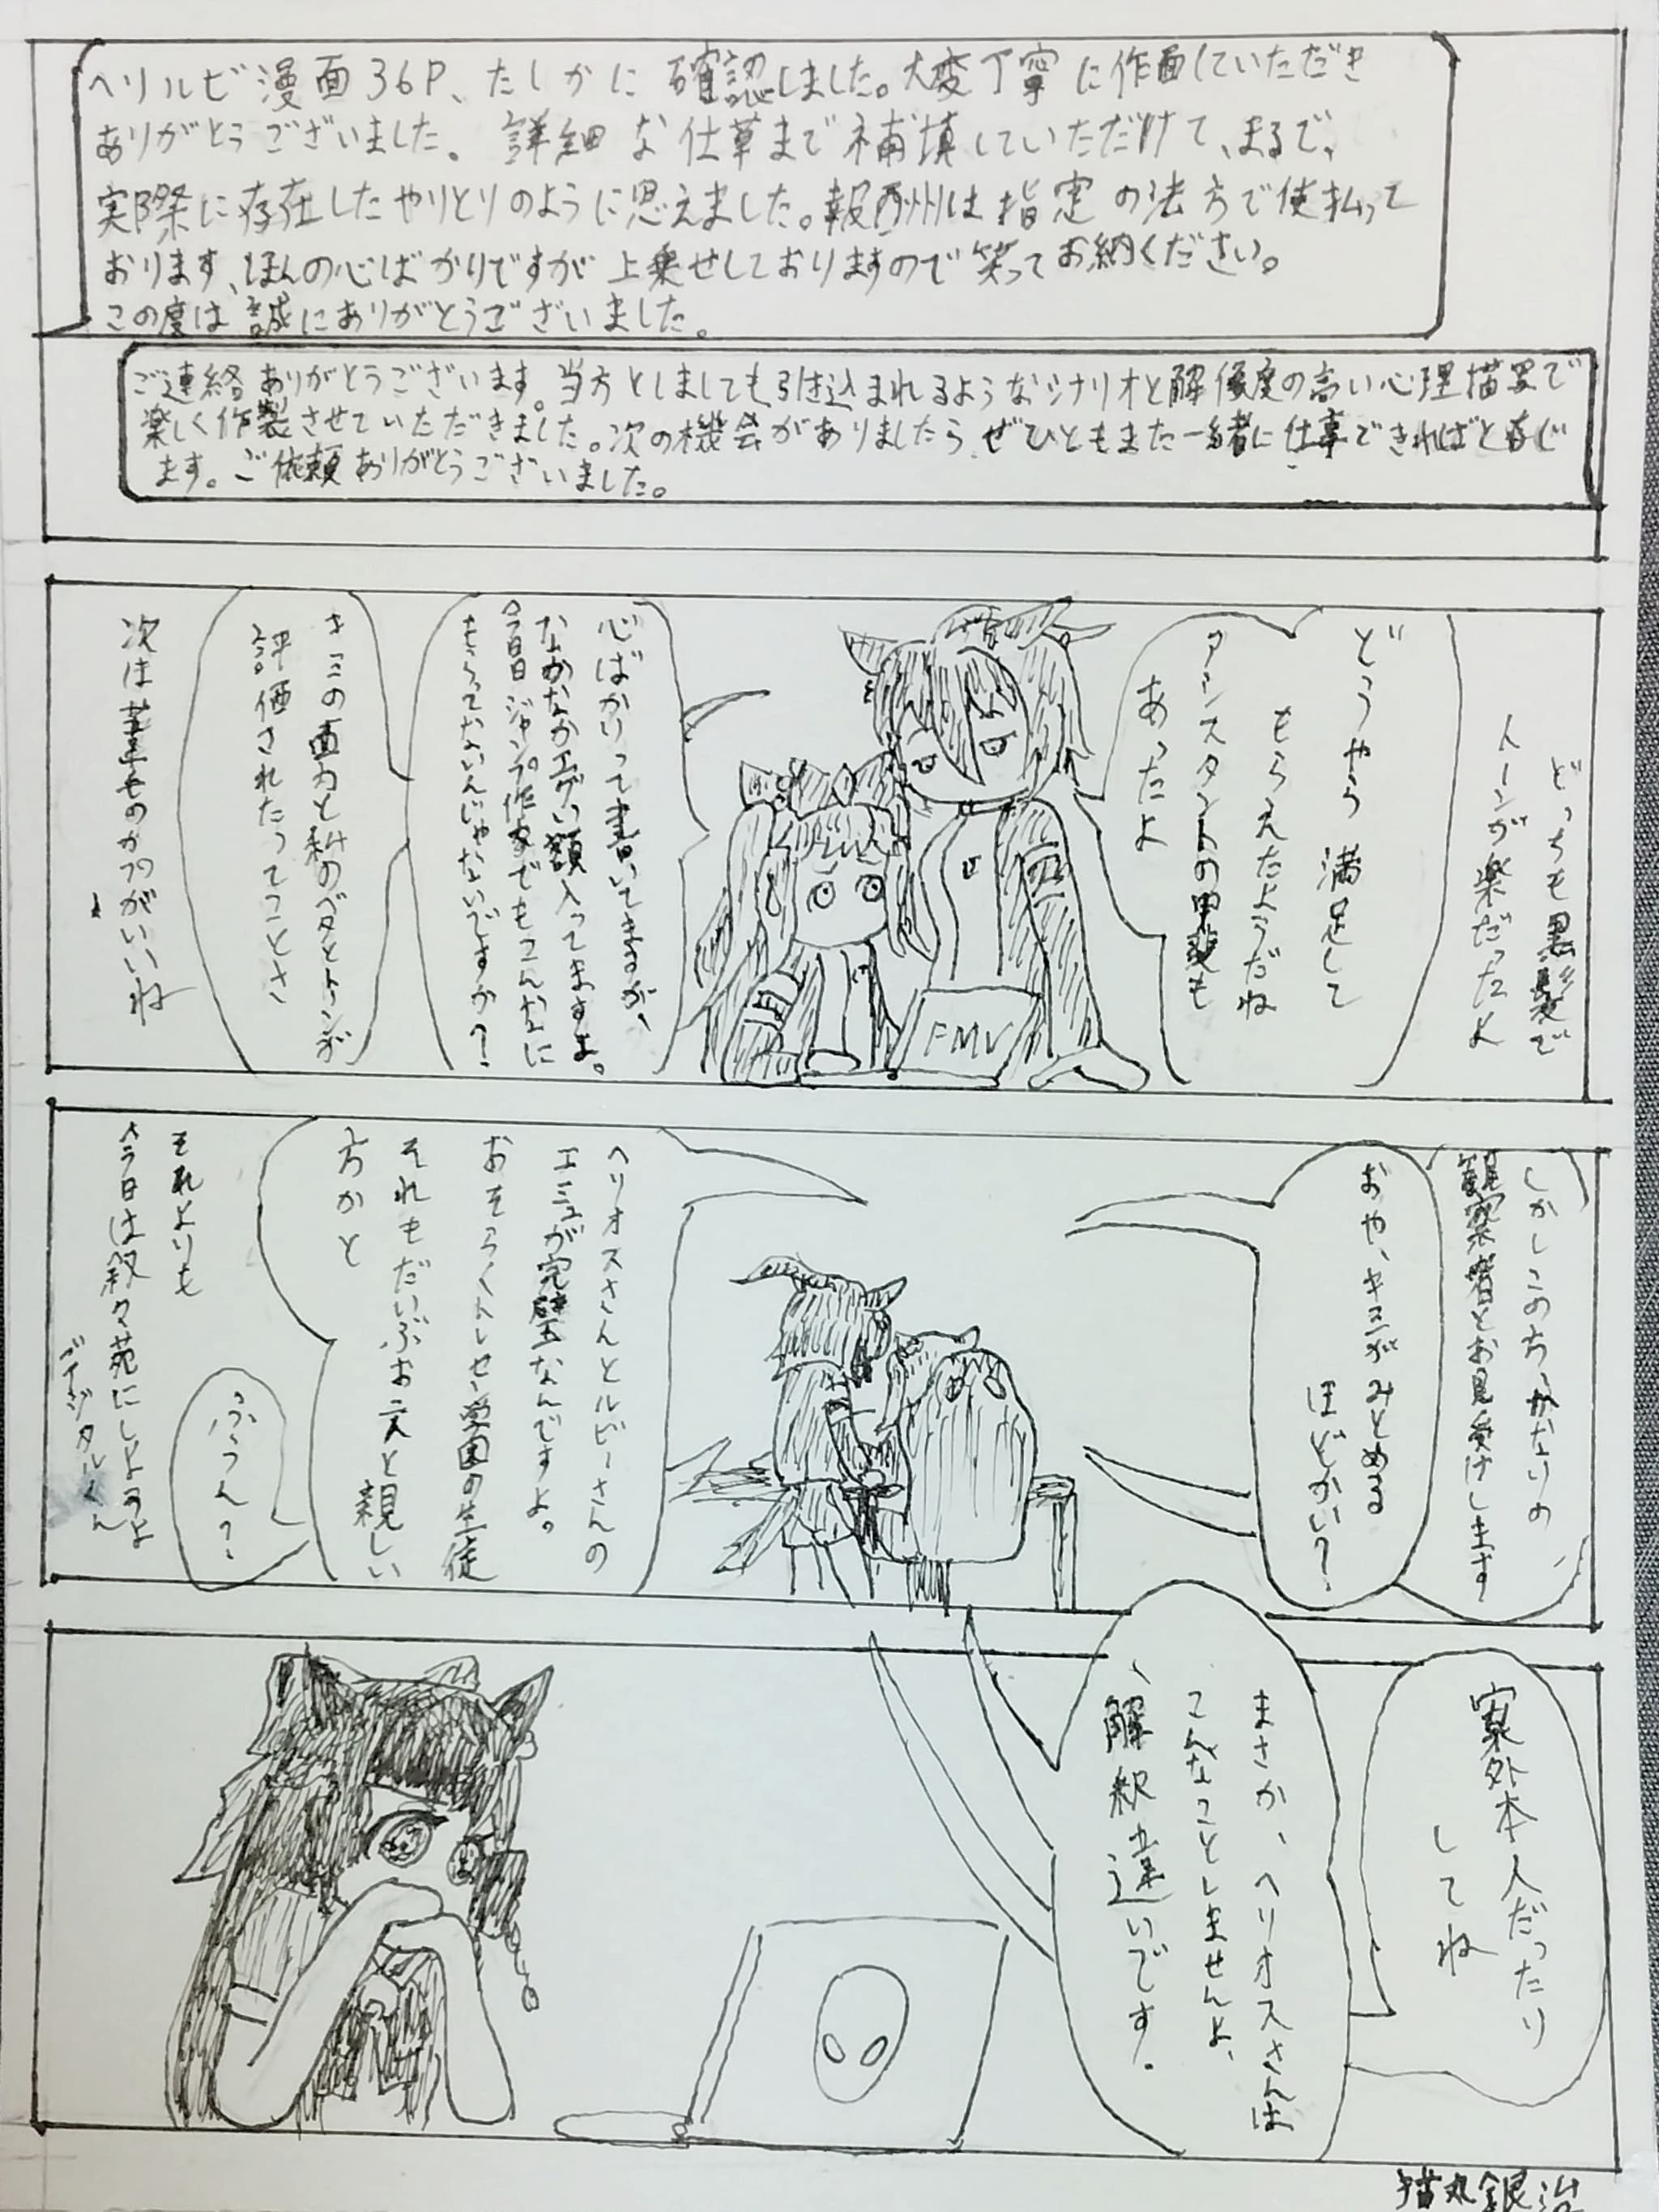 ヘリルビ漫画36P、たしかに確認しました。大変丁寧に作画していただき
ありがとうございました。詳細な仕草まで補填していただけて、まるで、
実際に存在したやりとりのように思えました。報酬は指定の法方で使払って
おります、ほんの心ばかりですが上乗せしておりますので笑ってお納ください。
この度は誠にありがとうございました。
ご連絡ありがとうございます。当方としましても引き込まれるようなシナリオと解像度の高い心理描写で
楽しく作製させていただきました。次の機会がありましたらぜひともまた一緒に仕事できればと存じ
ます。ご依頼ありがとうございました。
どっちも黒髪で
トーンが楽だったよ
どうやら満足して
もらえたようだね
アシスタントの甲斐も
あったよ
FMV
心ばかりって書いてますが、
なかなかエグい額入ってますよ。
今日日ジャンプ作家でもこんなに
もらってないんじゃないですか？
キミの画力と私のベタとトーンが
評価されたってことさ
次は葦毛のカプがいいね
しかしこの方、かなりの
観察者とお見受けします
おや、キミがみとめる
ほどかい？
ヘリオスさんとルビーさんの
エミュが完璧なんですよ。
おそらくトレセン学園の生徒
それもだいぶお二人と親しい
方かと
ふぅん？
それよりも
今日は叙々苑にしようよ
デジタルくん
案外本人だったり
してね
まさか、ヘリオスさんは
こんなことしませんよ、
解釈違いです。
猫丸銀治